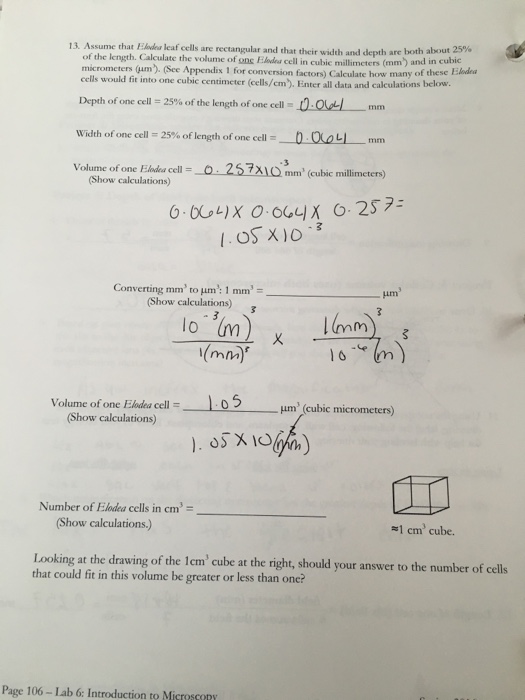 13. Assume that Elodea leaf cells are rectangular and that their width and depth are both about 25%
of the length. Calculate the volume of one Elodea cell in cubic millimeters (mm³) and in cubic
micrometers (µm³). (See Appendix 1 for conversion factors) Calculate how many of these Elodea
cells would fit into one cubic centimeter (cells/cm³). Enter all data and calculations below.
Depth of one cell = 25% of the length of one cell = 0.064 mm
Width of one cell = 25% of length of one cell = 0.064 mm
Volume of one Elodea cell = 0.257X10⁻³ mm³ (cubic millimeters)
(Show calculations)
0.064 X 0.064 X 0.257 =
1.05 X10⁻³
Converting mm³ to µm³: 1 mm³ = ____ µm³
(Show calculations)
10⁻³(m)³ X 1(mm)³
1(mm)³ 10⁻⁶(m)³
Volume of one Elodea cell = 1.05 µm³ (cubic micrometers)
(Show calculations)
1.05 X10
Number of Elodea cells in cm³ = ____
(Show calculations.)
≈1 cm³ cube.
Looking at the drawing of the 1cm³ cube at the right, should your answer to the number of cells
that could fit in this volume be greater or less than one?
Page 106 – Lab 6: Introduction to Microscopy